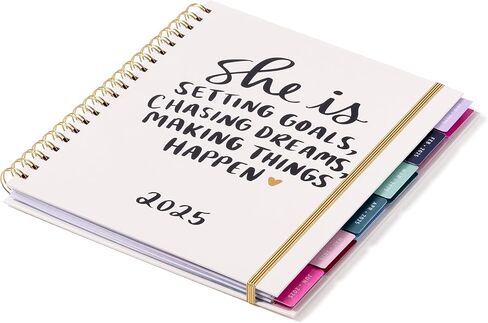 she is
SETTING GOALS,
CHASING DREAMS,
MAKING THINGS
HAPPEN
2025